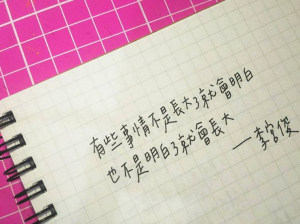 有些事情不是長大了就會明白
也不是明白了就會長大
—李宮俊